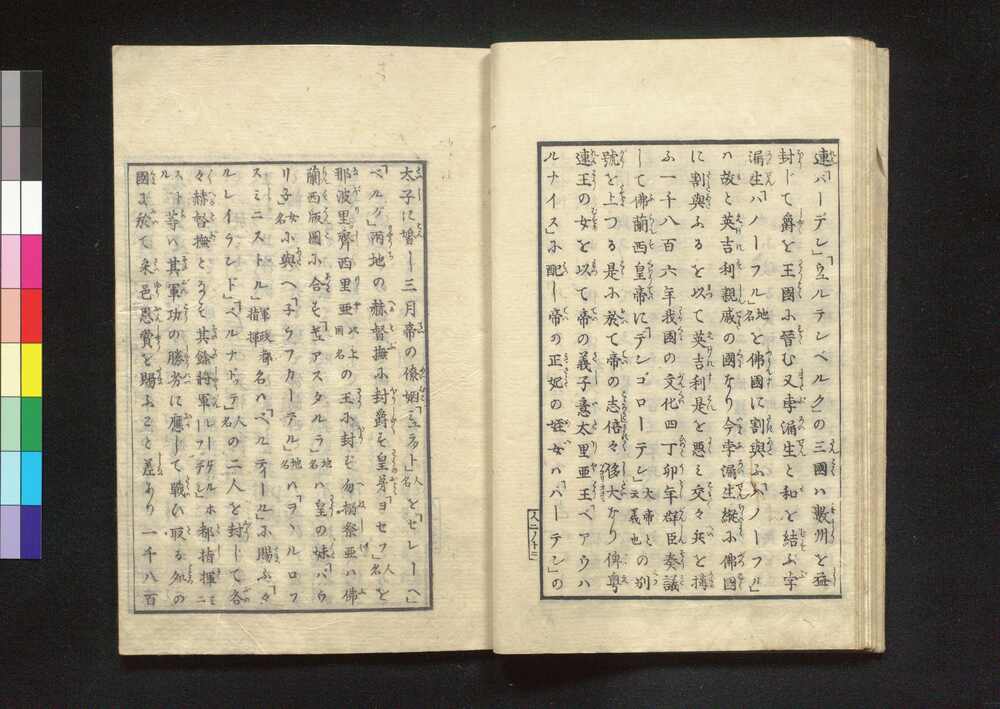 連「バーデン」「ウェルテンベルク」の三國ハ數州を益
封じて爵を王國に晉む又孛漏生と和を結ぶ孛
漏生「ハノーフル」地名を佛國に割與ふ「ハノーフル」
ハ故と英吉利親戚の國なり今孛漏生縦に佛國
に割與ふるを以て英吉利是を惡ミ交々兵を搆
ふ一千八百六年我國の文化四丁卯年群臣奏議
して佛蘭西皇帝に「デンゴローテン」大帝との別云義也
號を上つる是に於て帝の志倍々侈大なり俾尊
連王の女を以て帝の義子意太里亜王「ベアウハ
ルナイス」に配し帝の正妃の姪女ハ「バーデン」の
太子に婚し三月帝の僚婿「ミュラット」人名を「ゼレーヘ」
「ベルグ」兩地の赫督撫に封爵す皇兄「ヨセフ」人名を
那波里齊西里亜以上國名の王に封ず勿搦祭亜ハ佛
蘭西版圖に合す「ギュアスタルラ」地名ハ皇の妹「パウ
リ子」女名に與へ「子ウフカーテル」地名ハ「ヲヽルロフ
スミニストル」軍政都指揮名ハ「ベルティール」に賜ふ「々
ルレイランド」「ベルナドッテ」人名の二人を封じて各
々赫督撫とす其餘將軍「レーフデン」都指揮ニ
スト等ハ其軍功の勝劣に應じて戰ひ取る処の
國に於て采邑恩賞を賜ふこと差あり一千八百
入ニノ十二